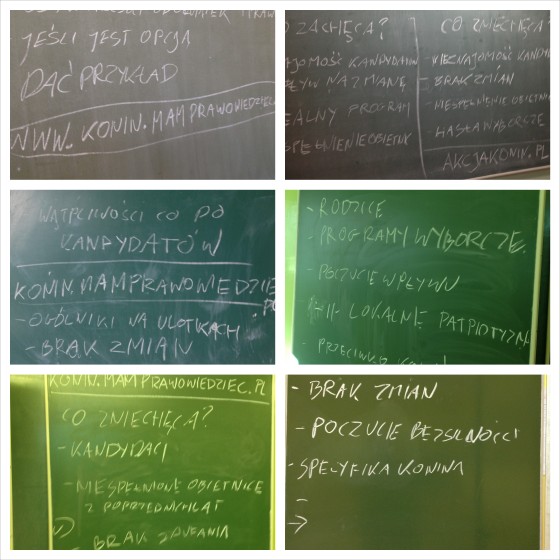 JEŚLI JEST OPCJA
DAĆ PRZYKŁAD
WWW.KONIN.MAMPRAWOWIEDZIEC
ZACHĘCA?
WPŁYW NA ZMIANĘ
PROGRAM
CO ZNIECHĘCA
- NIEZNAJOMOŚĆ KANDY
- BRAK ZMIAN
- NIESPEŁNIENIE OBIETNIC
- HASŁA WYBORCZE
AKCJAKONIN.PL
WĄTPLIWOŚCI CO DO
KANDYDATÓW
KONIN.MAMPRAWOWIEDZIE
- OGÓLNIKI NA ULOTKACH
- BRAK ZMIAN
- RODZICE
- PROGRAMY WYBORCZE
- POCZUCIE WPŁYWU
- -II- LOKALNE PATRIOTYZM
KONIN.MAMPRAWOWIEDZIEC.PL
CO ZNIECHĘCA?
- KANDYDACI
- NIESPEŁNIONE OBIETNICE
Z POPRZEDNICH LAT
- BRAK ZAUFANIA
- BRAK ZMIAN
- POCZUCIE BEZSILNOŚCI
- SPECYFIKA KONINA
-
→